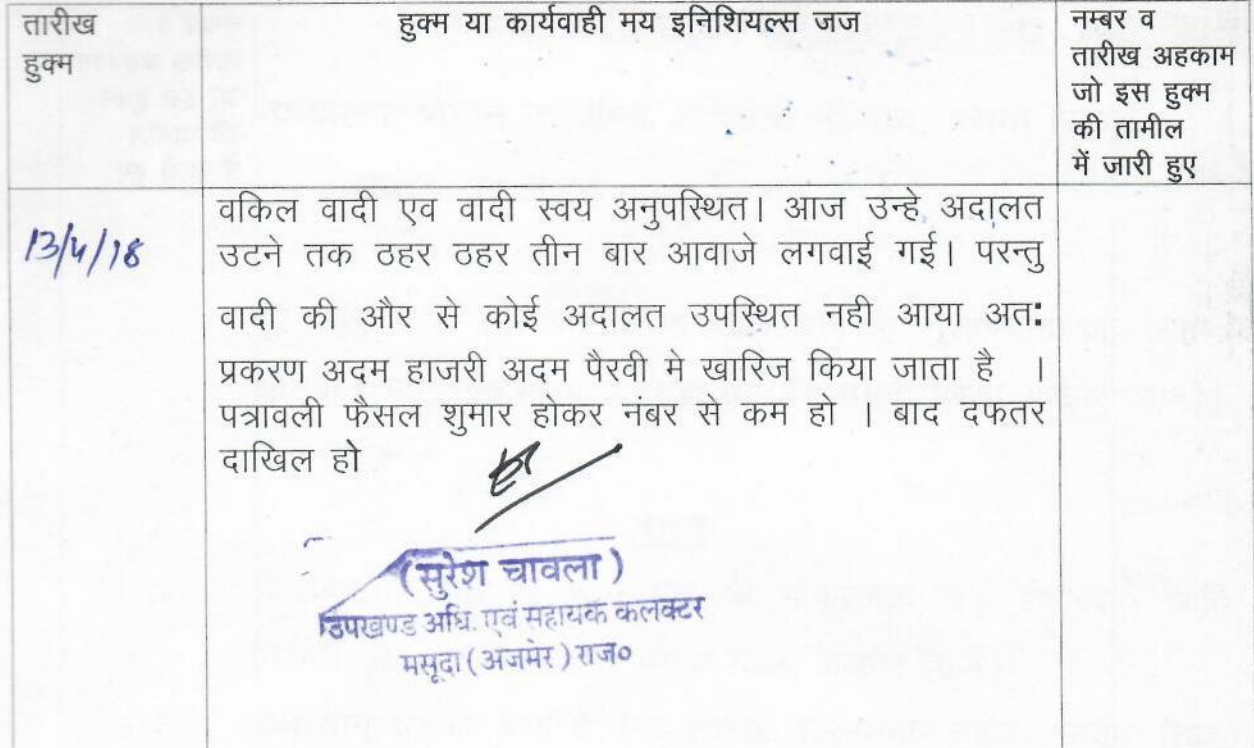 तारीख
हुक्म
हुक्म या कार्यवाही मय इनिशियल्स जज
नम्बर व
तारीख अहकाम
जो इस हुक्म
की तामील
में जारी हुए
13/4/18
वकिल वादी एव वादी स्वय अनुपस्थित। आज उन्हे अदालत
उटने तक ठहर ठहर तीन बार आवाजे लगवाई गई। परन्तु
वादी की और से कोई अदालत उपस्थित नही आया अत:
प्रकरण अदम हाजरी अदम पैरवी मे खारिज किया जाता है ।
पत्रावली फैसल शुमार होकर नंबर से कम हो । बाद दफतर
दाखिल हो
(सुरेश चावला)
उपखण्ड अधि. एवं सहायक कलक्टर
मसूदा (अजमेर) राज०